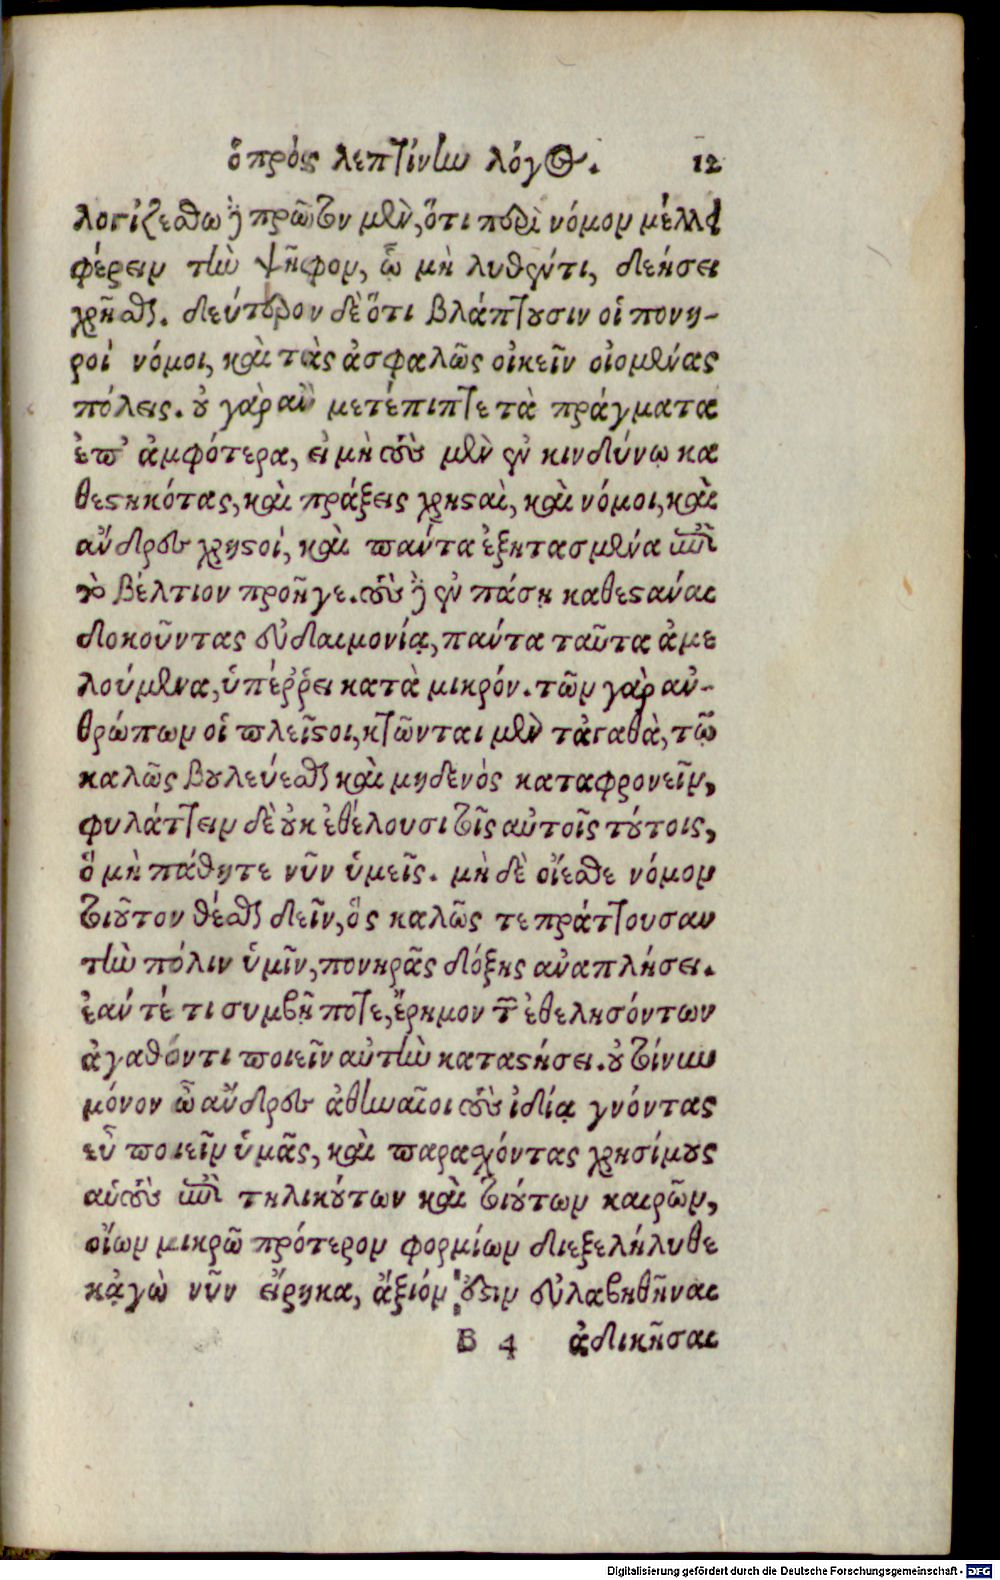 ὁ πρὸς λεπτίνην λόγος. 12
λογιζέσθω δ' πρῶτον μὲν, ὅτι περὶ νόμου μέλλει
φέρειν τὴν ψῆφον, ᾧ μὴ λυθέντι, δεήσει
χρῆσθαι. δεύτερον δὲ ὅτι βλάπτουσιν οἱ πονη-
ροὶ νόμοι, καὶ τὰς ἀσφαλῶς οἰκεῖν οἰομένας
πόλεις. οὐ γὰρ ἂν μετέπιπτε τὰ πράγματα
ἐπ' ἀμφότερα, εἰ μὴ τοὺς μὲν ἐν κινδύνῳ κα
θεστηκότας, καὶ πράξεις χρησταὶ, καὶ νόμοι, καὶ
ἄνδρες χρηστοί, καὶ πάντα ἐξητασμένα ἐπὶ
τὸ βέλτιον προῆγε. τοὺς δ' ἐν πάσῃ καθεστάναι
δοκοῦντας εὐδαιμονίᾳ, πάντα ταῦτα ἀμε
λούμενα, ὑπέῤῥει κατὰ μικρόν. τῶν γὰρ ἀν-
θρώπων οἱ πλεῖστοι, κτῶνται μὲν τἀγαθὰ, τῷ
καλῶς βουλεύεσθαι καὶ μηδενὸς καταφρονεῖν,
φυλάττειν δὲ οὐκ ἐθέλουσι τοῖς αὐτοῖς τούτοις,
ὃ μὴ πάθητε νῦν ὑμεῖς. μὴ δὲ οἴεσθε νόμον
τοιοῦτον θέσθαι δεῖν, ὃς καλῶς τε πράττουσαν
τὴν πόλιν ὑμῖν, πονηρᾶς δόξης ἀναπλήσει.
ἐάν τέ τι συμβῇ ποτε, ἔρημον τῶν ἐθελησόντων
ἀγαθόν τι ποιεῖν αὐτὴν καταστήσει. οὐ τοίνυν
μόνον ὦ ἄνδρες ἀθηναῖοι τοὺς ἰδίᾳ γνόντας
εὖ ποιεῖν ὑμᾶς, καὶ παρασχόντας χρησίμους
αὑτοὺς ἐπὶ τηλικούτων καὶ τοιούτων καιρῶν,
οἵων μικρῶ πρότερον φορμίων διεξελήλυθε
κᾀγὼ νῦν εἴρηκα, ἄξιόν ἐστιν εὐλαβηθῆναι
B 4 ἀδικῆσαι
Digitalisierung gefördert durch die Deutsche Forschungsgemeinschaft - DFG